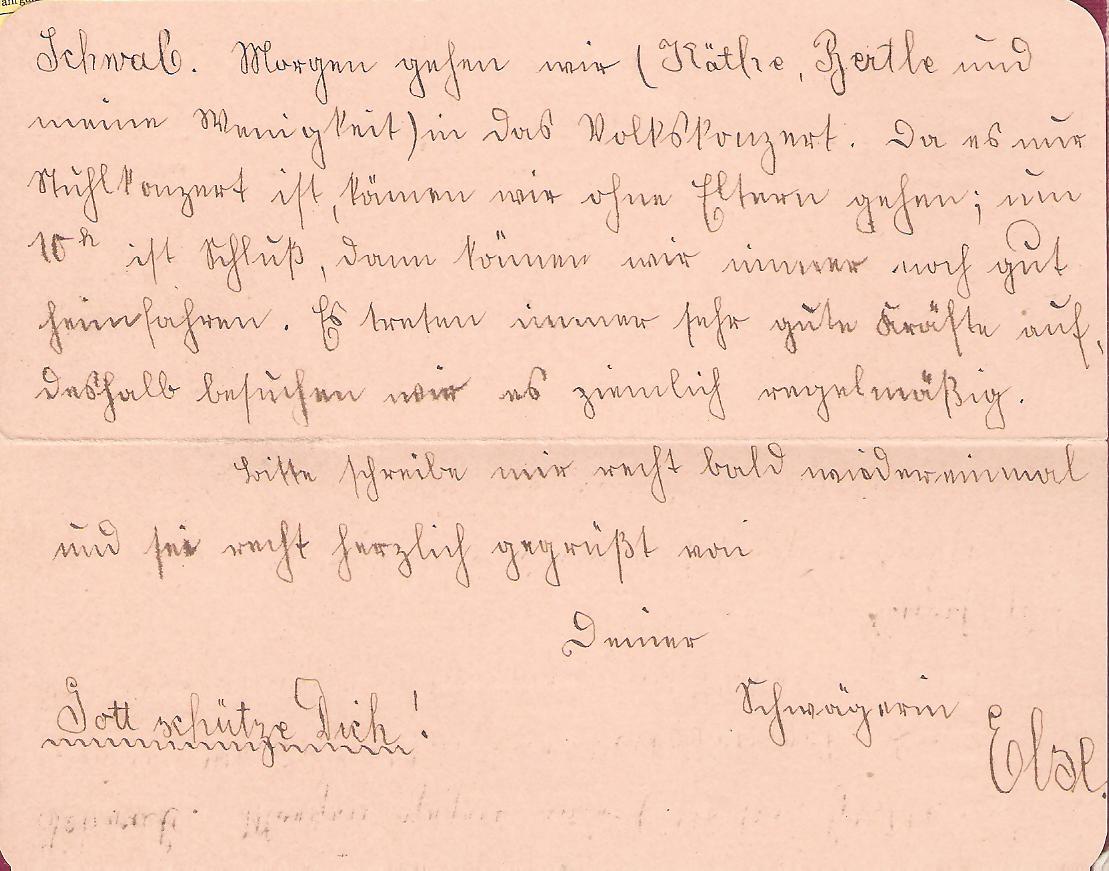 Schwab. Morgen gehen wir (Käthe, Bertle und
meine Wenigkeit) in das Volkskonzert. Da es nur
Stuhlkonzert ist, können wir ohne Eltern gehen; um
10h ist Schluß, dann können wir immer noch gut
heimfahren. Es treten immer sehr gute Kräfte auf,
deshalb besuchen wir es ziemlich regelmäßig.
Bitte schreibe mir recht bald wiedereinmal
und sei recht herzlich gegrüßt von
Deiner
Schwägerin
Gott schütze Dich!
Else.